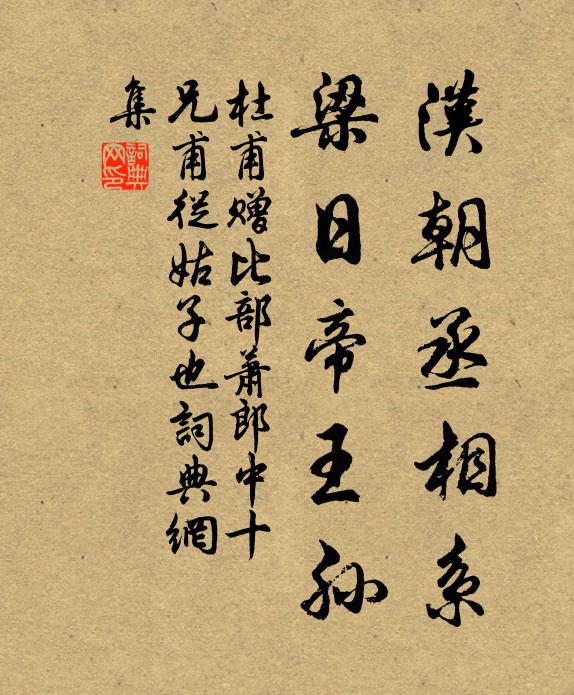 漢朝丞相系
梁日帝王孫
杜甫贈比部蕭郎中十
兄甫從姑子也詞典網
集
詞典
网印